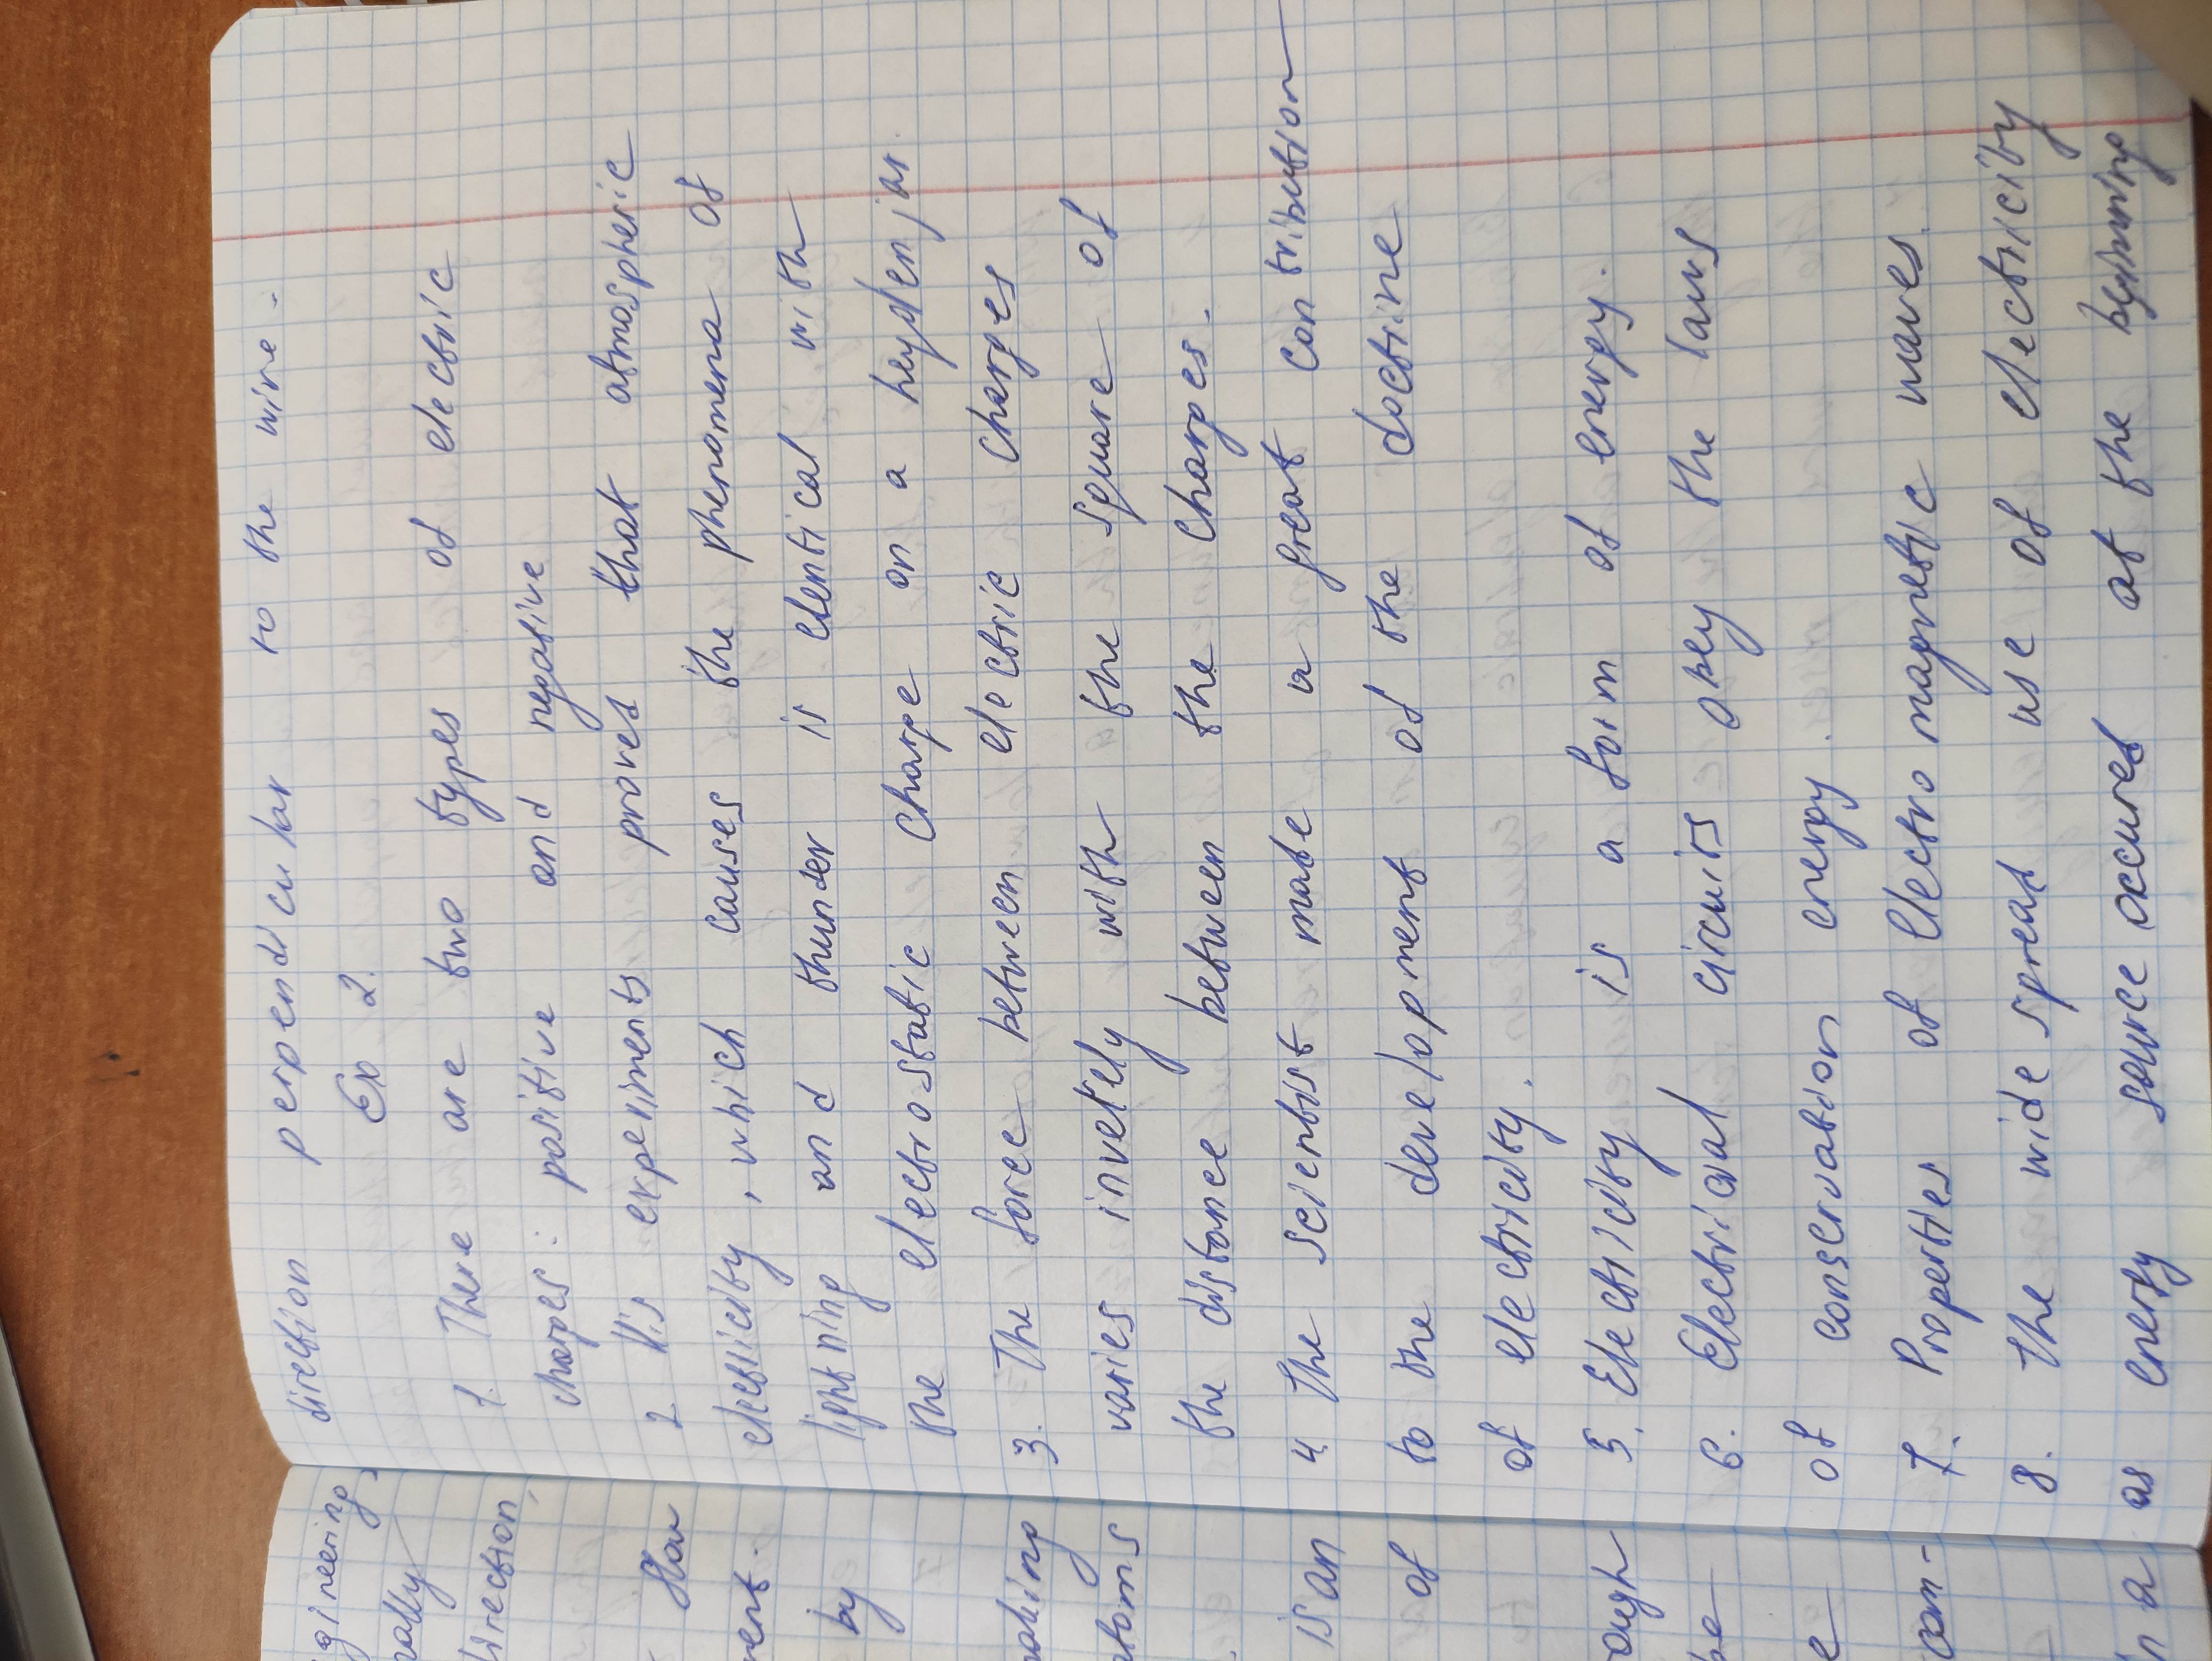 direction perpendicular to the wire.
Ex 2.
1. There are two types of electric
charges: positive and negative
2 His experiments proved that atmospheric
electricity, which causes the phenomena of
lightning and thunder is identical with
the electrostatic charge on a leyden jar.
3. The force between electric charges
varies inversely with the square of
the distance between the charges.
4 The scientist made a great contribution
to the development of the doctrine
of electricity.
5. Electricity is a form of energy.
6. Electrical circuits obey the laws
of conservation energy.
7. Properties of electromagnetic waves.
8. The widespread use of electricity
as energy source occured at the
gineering,
nally
direction,
flow
rent.
by
atoms
is an
of
ough
be
e
con-
in a